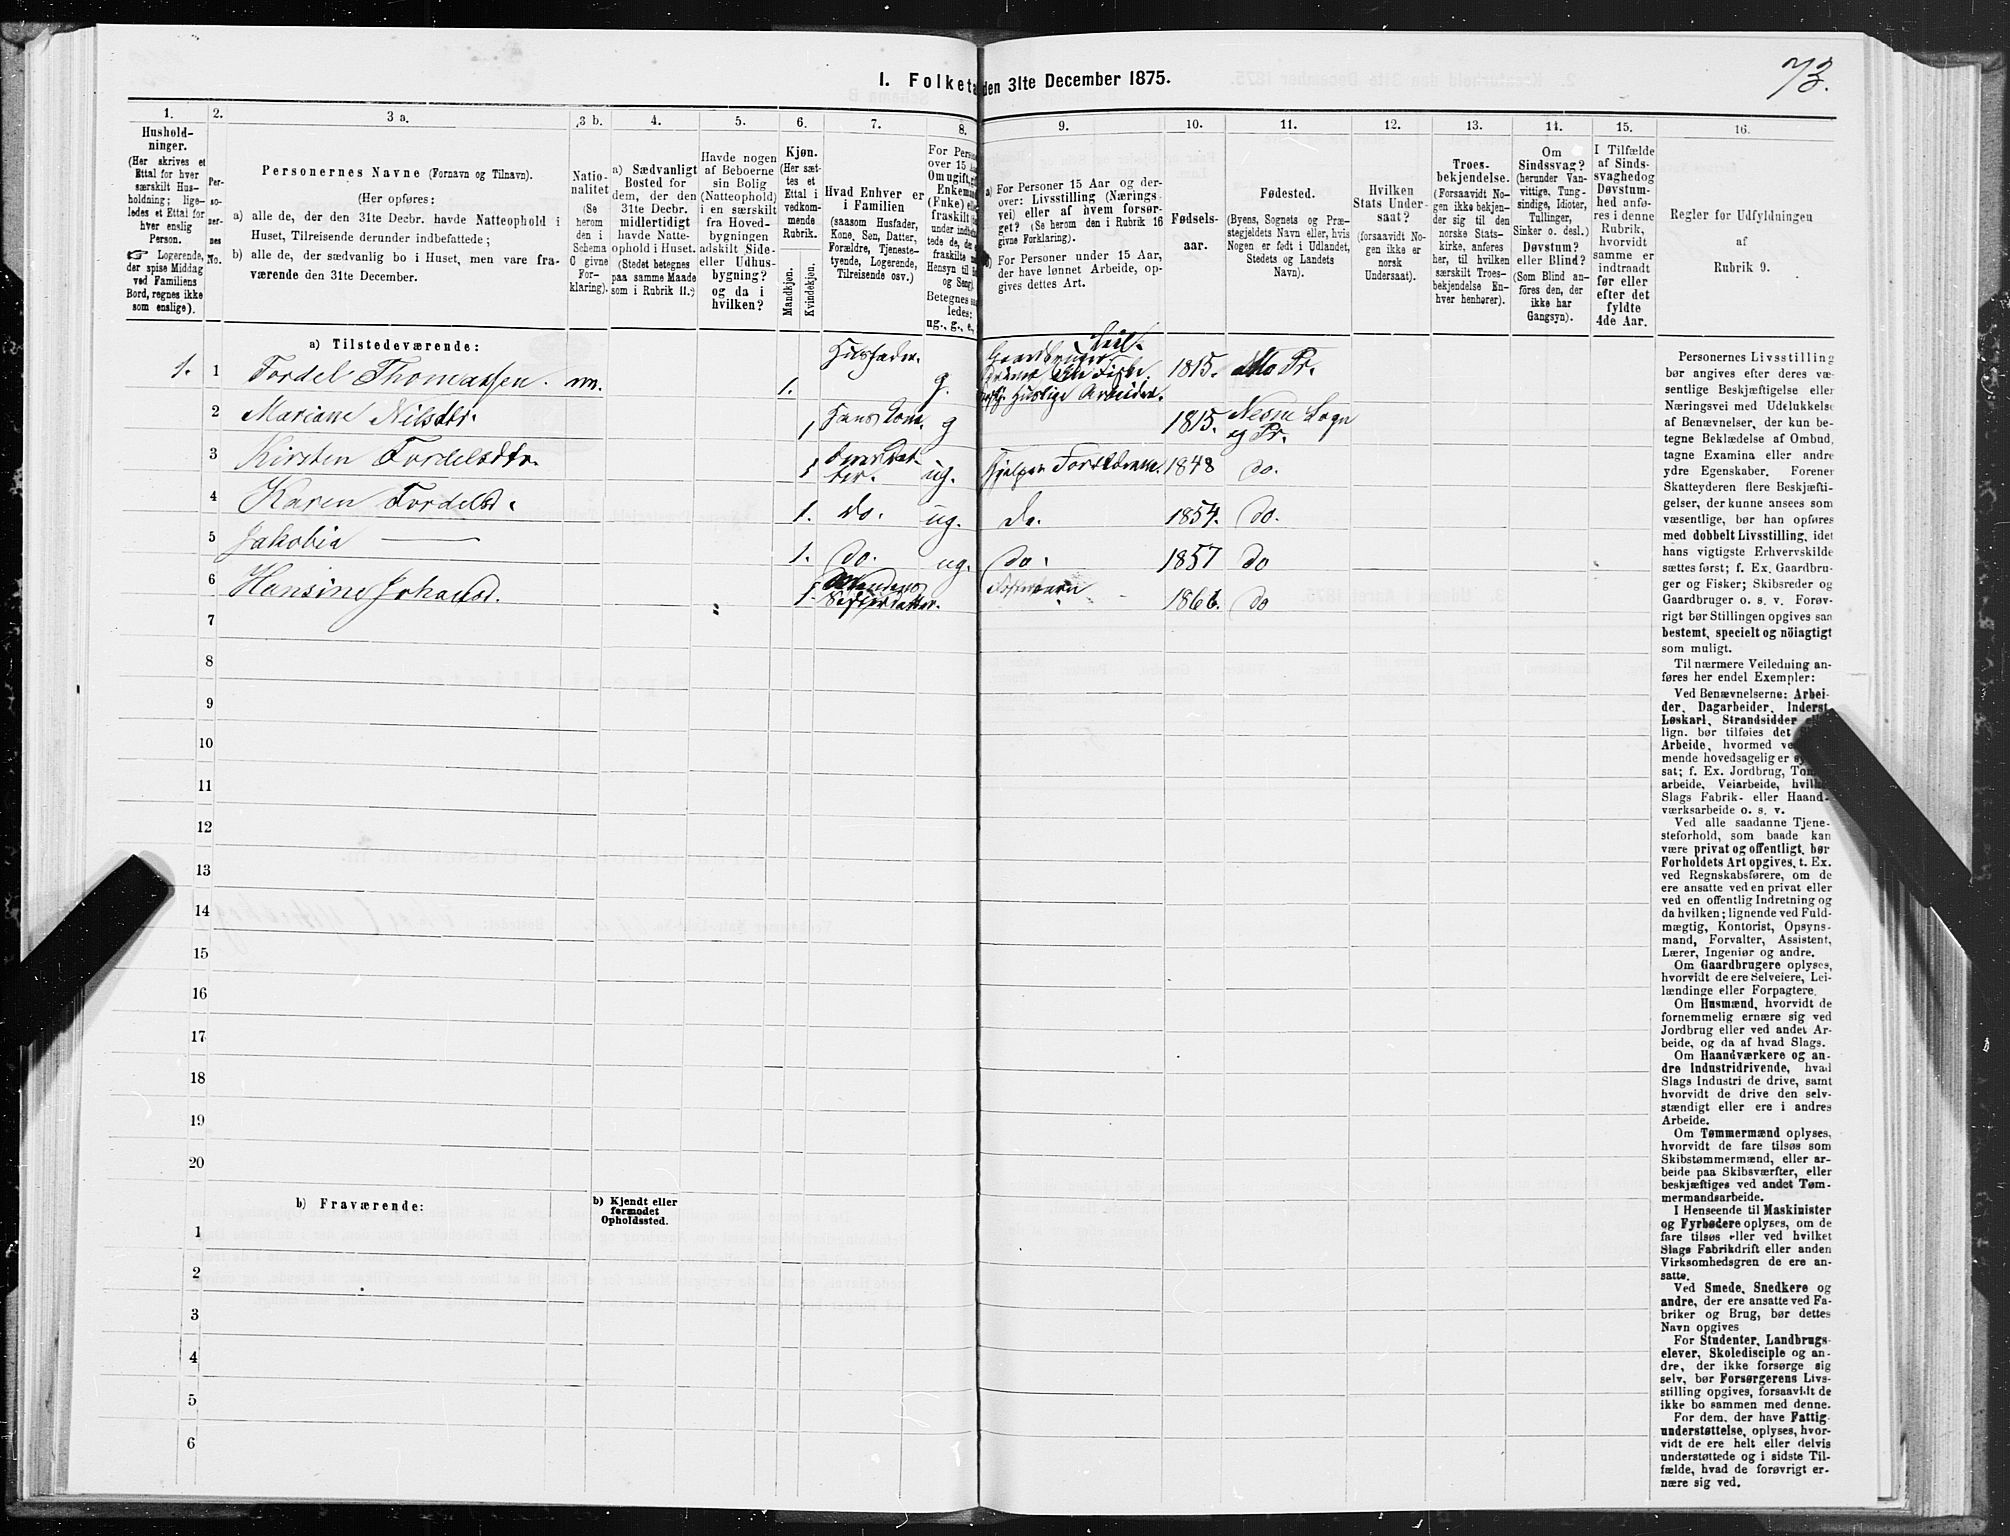 73.
1. Folketæ den 31te December 1875.
1.
2.
3 a.
3 b.
4.
5.
6.
7.
8.
9.
10.
11.
12.
13.
14.
15.
16.
Hushold-
ninger.
(Her skrives et
Ettal for hver
særskilt Hus-
holdning; lige-
ledes et Ettal for
hver enslig
Person.
☞ Logerende,
der spise Middag
ved Familiens
Bord, regnes ikke
som enslige).
Per-
so-
ner-
nes
No.
Personernes Navne (Fornavn og Tilnavn).
(Her opføres:
a) alle de, der den 31te Decbr. havde Natteophold i
Huset, Tilreisende derunder indbefattede;
b) alle de, der sædvanlig bo i Huset, men vare fra-
værende den 31te December.
Natio-
nalitet
(Se
herom
den i
Schema
C givne
For-
klaring).
a) Sædvanligt
Bosted for
dem, der den
31te Decbr.
midlertidigt
havde Natte-
ophold i Huset.
(Stedet betegnes
paa samme Maade
som i Rubrik 11.)
Havde nogen
af Beboerne
sin Bolig
(Natteophold)
i en særskilt
fra Hoved-
bygningen
adskilt Side-
eller Udhus-
bygning?
og da i
hvilken?
Kjøn.
(Her sæt-
tes et
Ettal i
vedkom-
mende
Rubrik.
Mandkjøn.
Kvindekjøn.
Hvad Enhver er
i Familien
(saasom Husfader,
Kone, Søn, Datter,
Forældre, Tjeneste-
tyende, Logerende,
Tilreisende osv.)
For Person
over 15 Aa
Om ugift, g
Enkeman
(Enke) elle
fraskilt (h
under indb
tede de, de
fraskilte m
Hensyn til B
og Seng).
Betegnes saa
ledes:
ug., g., e.,
a) For Personer 15 Aar og der-
over: Livsstilling (Nærings-
vei) eller af hvem forsør-
get? (Se herom den i Rubrik 16
givne Forklaring).
b) For Personer under 15 Aar,
der have lønnet Arbeide, op-
gives dettes Art.
Fødsels-
aar.
Fødested.
(Byens, Sognets og Præ-
stegjeldets Navn eller, hvis
Nogen er født i Udlandet,
Stedets og Landets
Navn).
Hvilken
Stats Under-
saat?
(forsaavidt No-
gen ikke er
norsk
Undersaat).
Troes-
bekjendelse.
(Forsaavidt No-
gen ikke bekjen-
der sig til den
norske Stats-
kirke, anføres
her, til hvilken
særskilt Troes-
bekjendelse En-
hver henhører).
Om
Sindssvag?
(herunder Van-
vittige, Tung-
sindige, Idioter,
Tullinger,
Sinker o. desl.)
Døvstum?
eller Blind?
(Som Blind an-
føres den, der
ikke har
Gangsyn).
I Tilfælde
af Sinds-
svaghed og
Døvstum-
hed anfø-
res i denne
Rubrik,
hvorvidt
samme er
indtraadt
før eller
efter det
fyldte
4de Aar.
Regler for Udfyldningen
af
Rubrik 9.
a) Tilstedeværende:
1. 1 Tordel Thomassen. nn. 1. Husfader. g. Gaardbruger 1815. Pr.
2 Mariane Nilsdtr. 1 Hans Kone. g 1815. Nesne Sogn og Pr.
3 Kirsten Tordelsdtr. 1 Deres Dat-ter. ug. Hjelper Forældrene. 1848 do.
4 Karen Tordelsd. 1. do. ug. do. 1854. do.
5 Jakobia — 1. do. ug. do. 1857 do
6 Hansine Johansd. 1. Datter. 1866. do
7
8
9
10
11
12
13
14
15
16
17
18
19
20
b) Fraværende:
b) Kjendt eller
formodet
Opholdssted.
1
2
3
4
5
6
Personernes Livsstilling
bør angives efter deres væ-
sentlige Beskjæftigelse eller
Næringsvei med Udelukkelse
af Benævnelser, der kun be-
tegne Beklædelse af Ombud,
tagne Examina eller andre
ydre Egenskaber. Forener
Skatteyderen flere Beskjæfti-
gelser, der kunne ansees som
væsentlige, bør han opføres
med dobbelt Livsstilling, idet
hans vigtigste Erhvervskilde
sættes først; f. Ex. Gaardbru-
ger og Fisker; Skibsreder og
Gaardbruger o. s. v. Forøv-
rigt bør Stillingen opgives saa
bestemt, specielt og nöiagtigt
som muligt.
Til nærmere Veiledning an-
føres her endel Exempler:
Ved Benævnelserne: Arbei-
der, Dagarbeider, Inderst,
Løskarl, Strandsidder
lign. bør tilføies det
Arbeide, hvormed
mende hovedsagelig er
sat; f. Ex. Jordbrug,
arbeide, Veiarbeide,
Slags Fabrik- eller Haand-
værksarbeide o. s. v.
Ved alle saadanne Tjene-
steforhold, som baade kan
være privat og offentligt, bør
Forholdets Art opgives, t. Ex.
ved Regnskabsførere, om de
ere ansatte ved en privat eller
ved en offentlig Indretning og
da hvilken; lignende ved Fuld-
mægtig, Kontorist, Opsyns-
mand, Forvalter, Assistent,
Lærer, Ingeniør og andre.
Om Gaardbrugere oplyses,
hvorvidt de ere Selveiere, Lei-
lændinge eller Forpagtere.
Om Husmænd, hvorvidt de
fornemmelig ernære sig ved
Jordbrug eller ved andet Ar-
beide, og da af hvad Slags.
Om Haandværkere og an-
dre Industridrivende, hvad
Slags Industri de drive, samt
hvorvidt de drive den selv-
stændigt eller ere i andres
Arbeide.
Om Tømmermænd oplyses,
hvorvidt de fare tilsøs som
Skibstømmermænd, eller ar-
beide paa Skibsværfter, eller
beskjæftiges ved andet Tøm-
mermandsarbeide.
I Henseende til Maskinister
og Fyrbødere oplyses, om de
fare tilsøs eller ved hvilket
Slags Fabrikdrift eller anden
Virksomhedsgren de ere an-
satte.
Ved Smede, Snedkere og
andre, der ere ansatte ved Fa-
briker og Brug, bør dettes
Navn opgives
For Studenter, Landbrugs-
elever, Skoledisciple og an-
dre, der ikke forsørge sig
selv, bør Forsørgerens Livs-
stilling opgives, forsaavidt de
ikke bo sammen med denne.
For dem, der have Fattig-
understøttelse, oplyses, hvor-
vidt de ere helt eller delvis
understøttede og i sidste Til-
fælde, hvad de forøvrigt er-
nære sig ved.